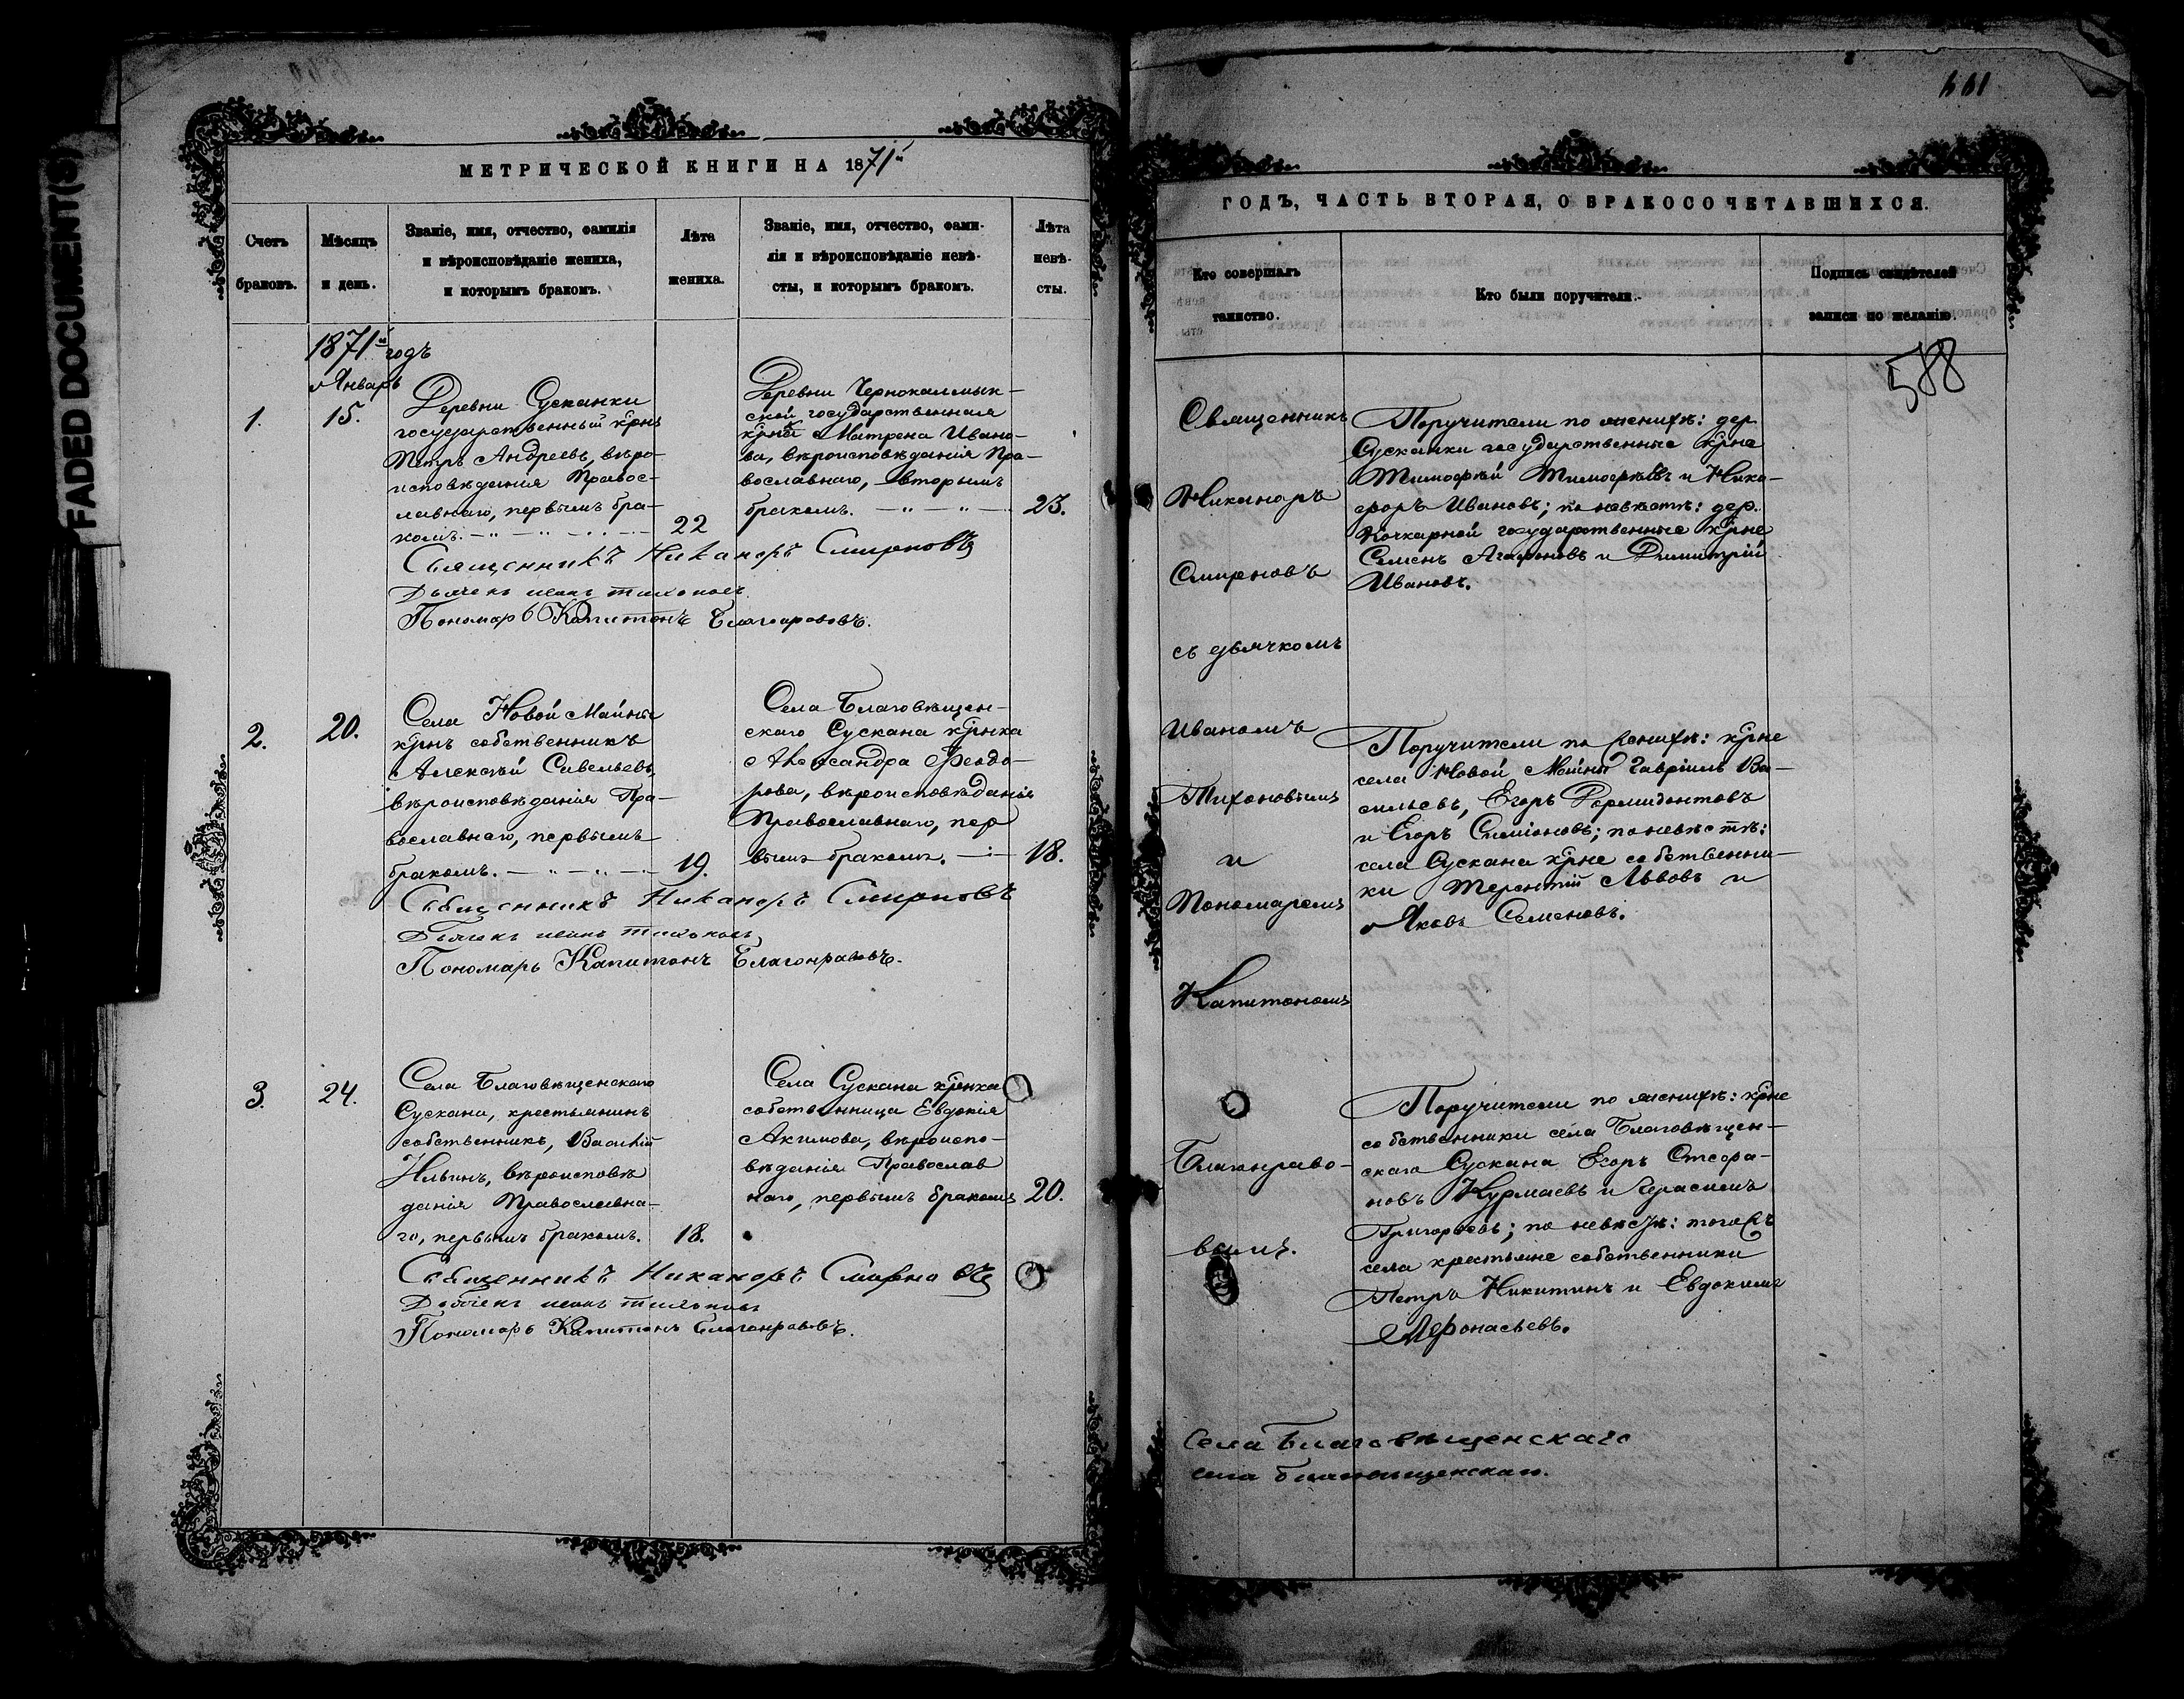 FADED DOCUMENT(S)
МЕТРИЧЕСКОЙ КНИГИ НА 1871й
Счетъ браковъ.
Мѣсяцъ и день.
Званіе, имя, отчество, фамилія
и вѣроисповѣданіе жениха,
и которымъ бракомъ.
Лѣта жениха.
Званіе, имя, отчество, фами-
лія и вѣроисповѣданіе невѣ-
сты, и которымъ бракомъ.
Лѣта невѣ-
сты.
1871й годъ
Январь
1.
15.
Деревни Сусканки
государственный крнъ
Петръ Андреевъ, вѣро-
исповѣданія Правос-
лавнаго, первымъ бра-
комъ.
22
Деревни Чернокалмык-
ской государственная
крнка Матрена Ивано-
ва, вѣроисповѣданія Пра-
вославнаго, вторымъ
бракомъ.
23.
Священникъ Никаноръ Смирновъ
Дьячекъ Иванъ Тихоновъ
Пономарь Капитонъ Благонравовъ.
2.
20.
Села Новой Майны
крнъ собственникъ
Алексѣй Савельевъ,
вѣроисповѣданія Пра-
вославнаго, первымъ
бракомъ.
19.
Села Благовѣщен-
скаго Сускана крнка
Александра Феодо-
рова, вѣроисповѣданія
Православнаго, пер
вымъ бракомъ.
18.
Священникъ Никаноръ Смирновъ
Дьячекъ Иванъ Тихоновъ
Пономарь Капитонъ Благонравовъ.
3.
24.
Села Благовѣщенскаго
Сускана, крестьянинъ
собственникъ, Василій
Ильинъ, вѣроисповѣ
данія Православна-
го, первымъ бракомъ.
18.
Села Сускана крнка
собственница Евдокія
Акимова, вѣроиспо-
вѣданія Православ
наго, первымъ бракомъ
20.
Священникъ Никаноръ Смирновъ
Дьячекъ Иванъ Тихоновъ
Пономарь Капитонъ Благонравовъ.
ГОДЪ, ЧАСТЬ ВТОРАЯ, О БРАКОСОЧЕТАВШИХСЯ.
Кто совершалъ
таинство.
Кто были поручители.
Подпись свидѣтелей
записи по желанію.
588
Священникъ
Никаноръ
Смирновъ
съ дьячкомъ
Иваномъ
Тихоновымъ
и
Пономаремъ
Капитономъ
Благонраво-
вымъ.
Поручители по женихѣ: дер.
Сусканки государственные крне
Тимофѣй Тимофѣевъ и Ники-
форъ Ивановъ; по невѣстѣ: дер.
Кочкарной государственные крне
Семенъ Агафоновъ и Димитрій
Ивановъ.
Поручители по женихѣ: крне
села Новой Майны Гавріилъ Ва-
сильевъ, Егоръ Фермидонтовъ
и Егоръ Симіоновъ; по невѣстѣ:
села Сускана крне собственни-
ки Терентій Львовъ и
Яковъ Семеновъ.
Поручители по женихѣ: крне
собственники села Благовѣщен-
скаго Сускана Егоръ Стефа-
новъ Курмаевъ и Герасимъ
Григорьевъ; по невѣстѣ: тогожъ
села крестьяне собственники
Петръ Никитинъ и Евдокимъ
Афонасьевъ.
Села Благовѣщенскаго
села Благовѣщенскаго.